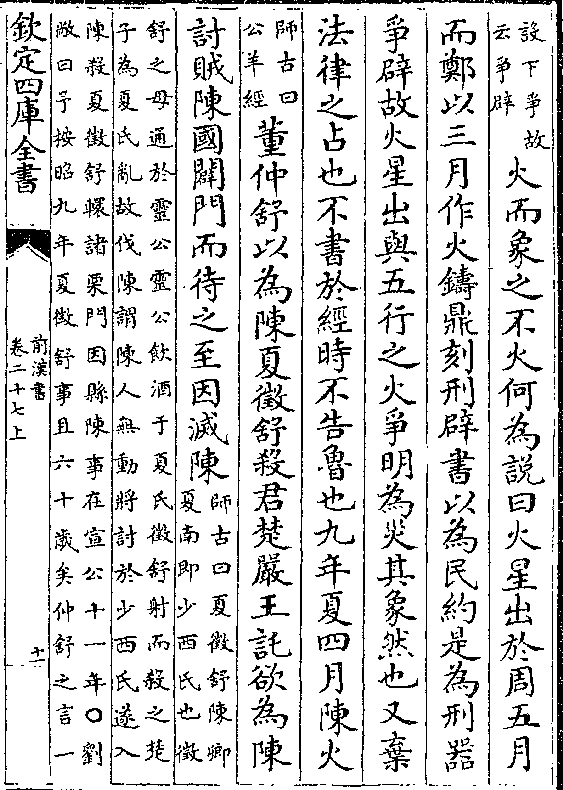 設下爭故
云爭辟
火而象之不火何為說曰火星出於周五月
而鄭以三月作火鑄鼎刻刑辟書以為民約是為刑器
爭辟故火星出與五行之火爭明為災其象然也又棄
法律之占也不書於經時不告魯也九年夏四月陳火
師古曰
公羊經
董仲舒以為陳夏徵舒殺君楚嚴王託欲為陳
討賊陳國闢門而待之至因滅陳
師古曰夏徵舒陳卿
夏南即少西氏也徵
舒之母通於靈公靈公飲酒于夏氏徵舒射而殺之楚
子為夏氏亂故伐陳謂陳人無動將討於少西氏遂入
陳殺夏徵舒轘諸栗門因縣陳事在宣公十一年○劉
敞曰予按昭九年夏徵舒事且六十歲矣仲舒之言一
欽定四庫全書
前漢書
卷二十七上
十一